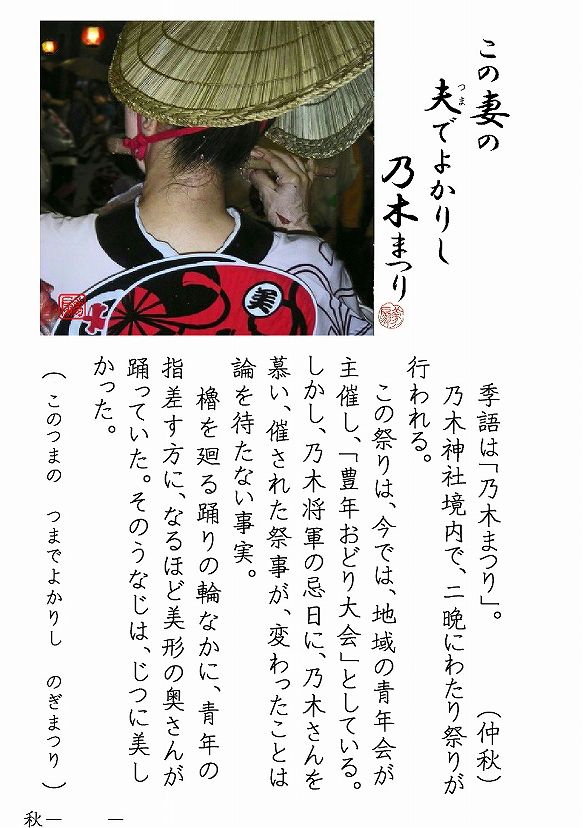 この妻の
夫でよかりし
つま
乃木まつり
美
季語は「乃木まつり」。　（仲秋）
乃木神社境内で、二晩にわたり祭りが
行われる。
この祭りは、今では、地域の青年会が
主催し、「豊年おどり大会」としている。
しかし、乃木将軍の忌日に、乃木さんを
慕い、催された祭事が、変わったことは
論を待たない事実。
櫓を廻る踊りの輪なかに、青年の
指差す方に、なるほど美形の奥さんが
踊っていた。そのうなじは、じつに美し
かった。
（このつまの　つまでよかりし　のぎまつり）
秋一　一